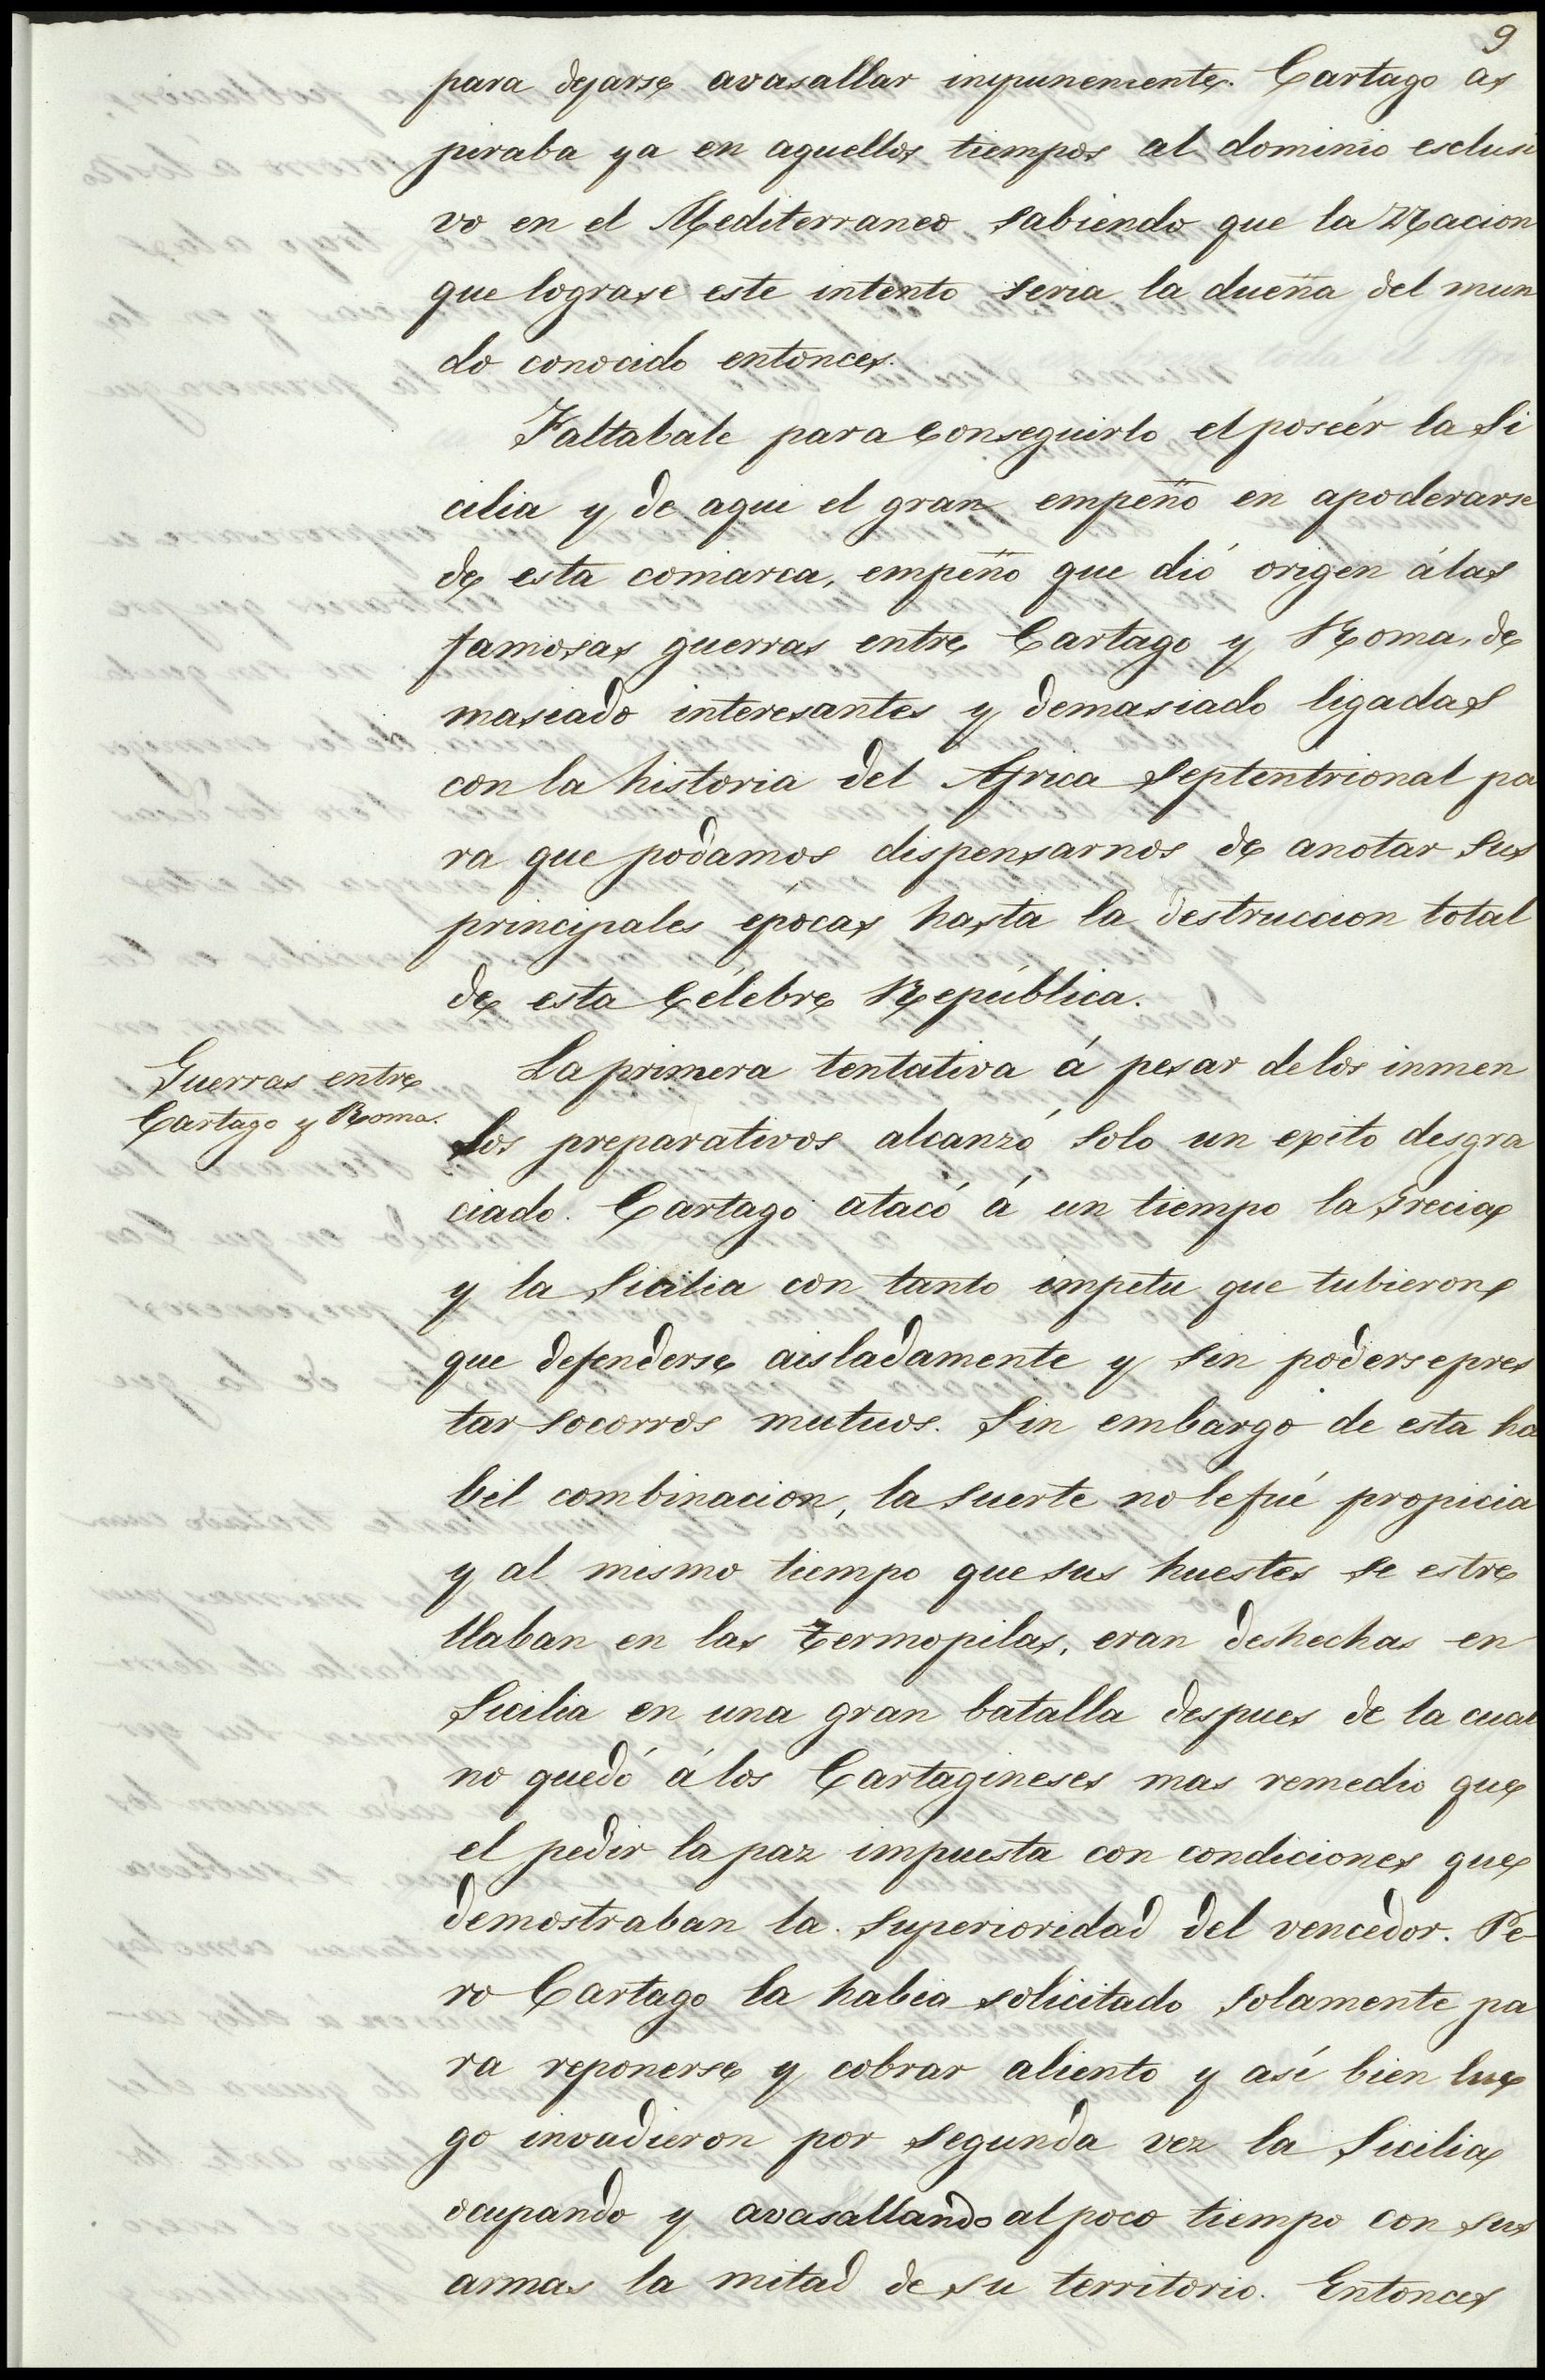 9
para dejarse avasallar impunemente. Cartago as
piraba ya en aquellos tiempos al dominio esclusi
vo en el Mediterraneo sabiendo que la Nacion
que lograse este intento seria la dueña del mun
do conocido entonces.
Faltabale para conseguirlo el poseér la Si
cilia y de aqui el gran empeño en apoderarse
de esta comarca, empeño que dió origen á las
famosas guerras entre Cartago y Roma, de
masiado interesantes y demasiado ligadas
con la historia del Africa Septentrional pa
ra que podamos dispensarnos de anotar sus
principales épocas hasta la destruccion total
de esta Célebre República.
Guerras entre
Cartago y Roma.
La primera tentativa á pesar de los inmen
sos preparativos alcanzó solo un exito desgra
ciado. Cartago atacó á un tiempo la Grecia
y la Sicilia con tanto impetu que tubieron
que defenderse aisladamente y sin poderse pres
tar socorros mutuos. Sin embargo de esta ha
bil combinacion, la suerte no le fué propicia
y al mismo tiempo que sus huestes se estre
llaban en las Termopilas, eran deshechas en
Sicilia en una gran batalla despues de la cual
no quedó á los Cartagineses mas remedio que
el pedir la paz impuesta con condiciones que
demostraban la superioridad del vencedor. Pe-
ro Cartago la habia solicitado solamente pa
ra reponerse y cobrar aliento y así bien lue
go invadieron por segunda vez la Sicilia
ocupando y avasallando al poco tiempo con sus
armas la mitad de su territorio. Entonces